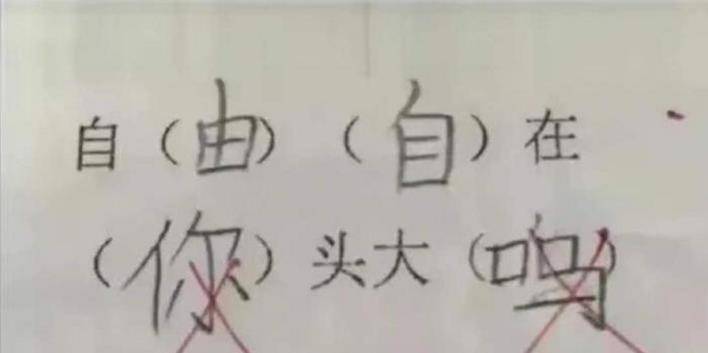 自（由）（自）在
（你）头大（呜）